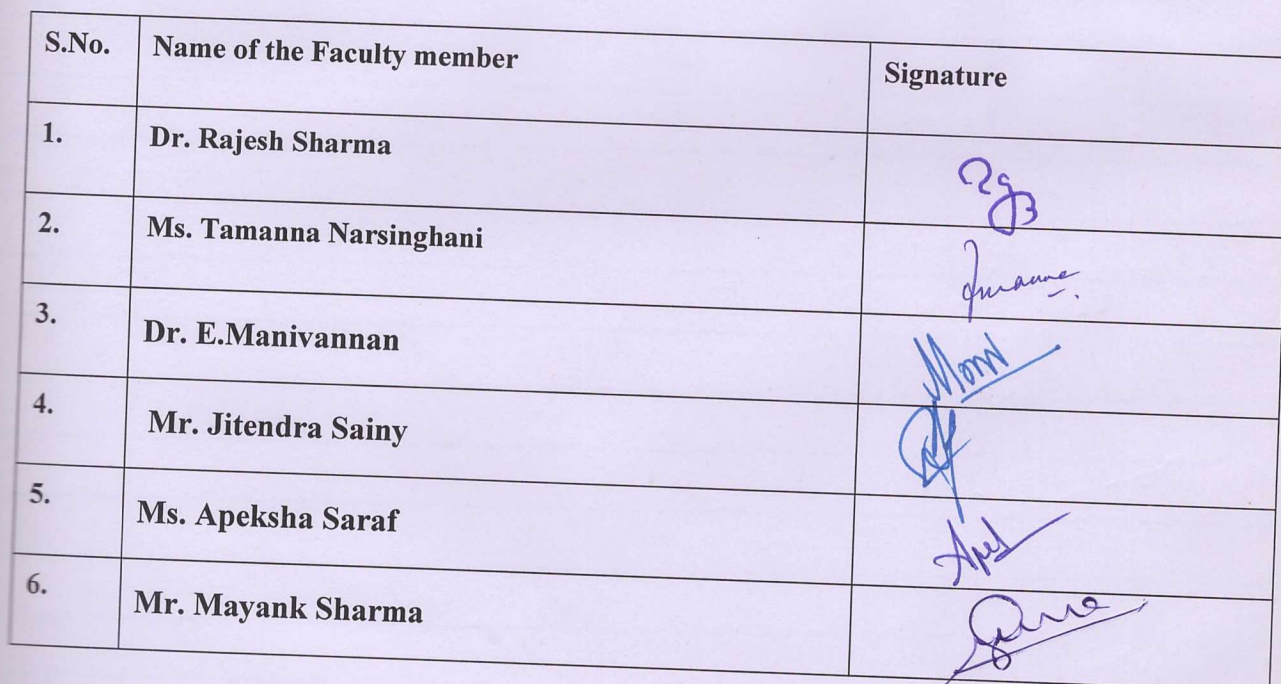 S.No. Name of the Faculty member Signature
1. Dr. Rajesh Sharma
2. Ms. Tamanna Narsinghani
3. Dr. E.Manivannan
4. Mr. Jitendra Sainy
5. Ms. Apeksha Saraf
6. Mr. Mayank Sharma